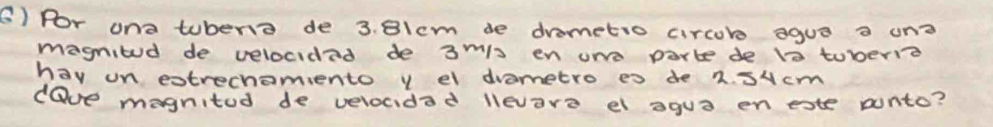 6) Por una tuberia de 3.81cm de diametro circula agua a una
magnitud de velocidad de 3m/s en una parte de la tuberia
hay un estrechamiento y el diametro es de 2.54cm
¿Que magnitud de velocidad llevara el agua en este punto?